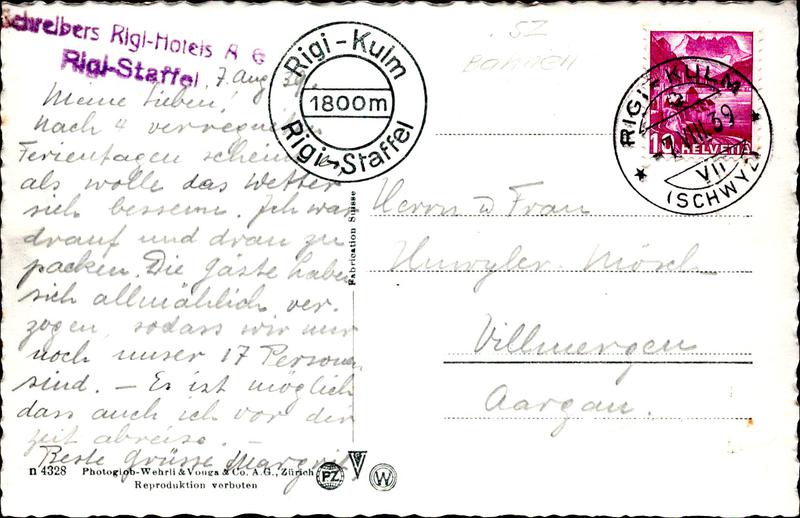 Schreibers Rigi-Hotels A G
Rigi-Staffel
7. Aug 39.
Meine Lieben!
Nach 4 verregneten
Ferientagen scheint
als wolle das Wetter
sich bessern. Ich war
drauf und dran zu
packen. Die Gäste haben
sich allmählich ver-
zogen, sodass wir nur
noch unser 17 Personen
sind. – Es ist möglich
dass auch ich vor der
Zeit abreise. –
Beste Grüsse Margrit
n 4328 Photoglob-Wehrli & Vouga & Co. A.G., Zürich
Reproduktion verboten
PZ
V
W
Fabrication Suisse
Rigi-Kulm
1800m
Rigi-Staffel
SZ
BAHNEN
10 HELVETIA
RIGI-KULM
7.VIII.39
VII
(SCHWYZ)
Herrn u Frau
Hunwyler-Mösch
Villmergen
Aargau.